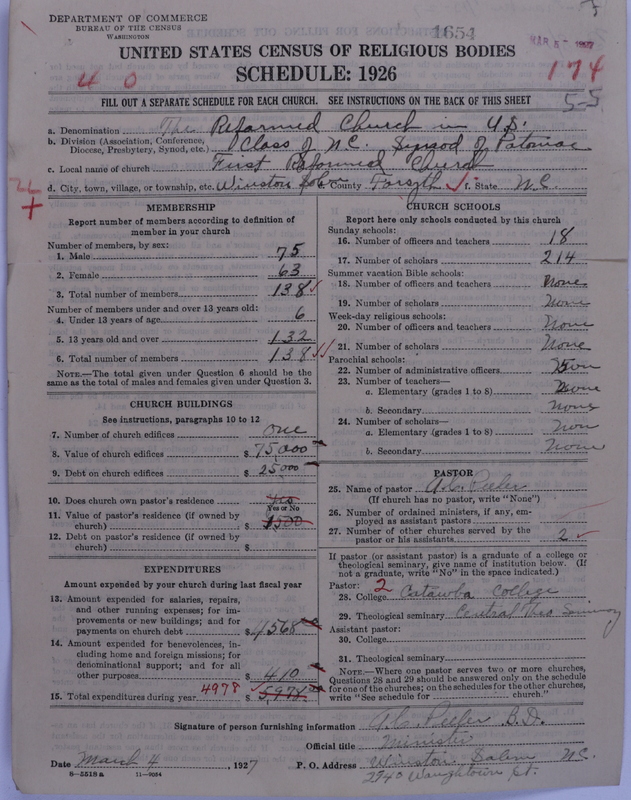 DEPARTMENT OF COMMERCE
BUREAU OF THE CENSUS
WASHINGTON
1654
MAR 5 1927
UNITED STATES CENSUS OF RELIGIOUS BODIES
SCHEDULE: 1926
4 0
174
55
FILL OUT A SEPARATE SCHEDULE FOR EACH CHURCH. SEE INSTRUCTIONS ON THE BACK OF THIS SHEET
a. Denomination The Reformed Church in U.S.
b. Division (Association, Conference, Diocese, Presbytery, Synod, etc.) Class of N.C. Synod of Potomac
c. Local name of church First Reformed Church
d. City, town, village, or township, etc. Winston Salem e. County Forsyth f. State N.C.
MEMBERSHIP
Report number of members according to definition of member in your church
Number of members, by sex:
1. Male 75
2. Female 63
3. Total number of members 138
Number of members under and over 13 years old:
4. Under 13 years of age 6
5. 13 years old and over 132
6. Total number of members 138
NOTE.—The total given under Question 6 should be the same as the total of males and females given under Question 3.
CHURCH BUILDINGS
See instructions, paragraphs 10 to 12
7. Number of church edifices one
8. Value of church edifices $ 75,000
9. Debt on church edifices $ 25,000
10. Does church own pastor's residence yes
Yes or No
11. Value of pastor's residence (if owned by church) $ 1500
12. Debt on pastor's residence (if owned by church) $
EXPENDITURES
Amount expended by your church during last fiscal year
13. Amount expended for salaries, repairs, and other running expenses; for improvements or new buildings; and for payments on church debt $ 4568
14. Amount expended for benevolences, including home and foreign missions; for denominational support; and for all other purposes $ 410
15. Total expenditures during year 4978 $ 5,978
CHURCH SCHOOLS
Report here only schools conducted by this church
Sunday schools:
16. Number of officers and teachers 18
17. Number of scholars 214
Summer vacation Bible schools:
18. Number of officers and teachers None
19. Number of scholars None
Week-day religious schools:
20. Number of officers and teachers None
21. Number of scholars None
Parochial schools:
22. Number of administrative officers
23. Number of teachers—
a. Elementary (grades 1 to 8) None
b. Secondary None
24. Number of scholars—
a. Elementary (grades 1 to 8) Non
b. Secondary None
PASTOR
25. Name of pastor A.C. Peeler
(If church has no pastor, write "None")
26. Number of ordained ministers, if any, employed as assistant pastors
27. Number of other churches served by the pastor or his assistants 2
If pastor (or assistant pastor) is a graduate of a college or theological seminary, give name of institution below. (If not a graduate, write "No" in the space indicated.)
Pastor: 2
28. College Catawba College
29. Theological seminary Central Theo Seminary
Assistant pastor:
30. College
31. Theological seminary
NOTE.—Where one pastor serves two or more churches, Questions 28 and 29 should be answered only on the schedule for one of the churches; on the schedules for the other churches, write "See schedule for church."
Signature of person furnishing information A.C. Peeler B.D.
Official title Minister
Date March 4, 1927 P. O. Address Winston Salem N.C.
2940 Waughtown St.
8—5518 a 11—9054